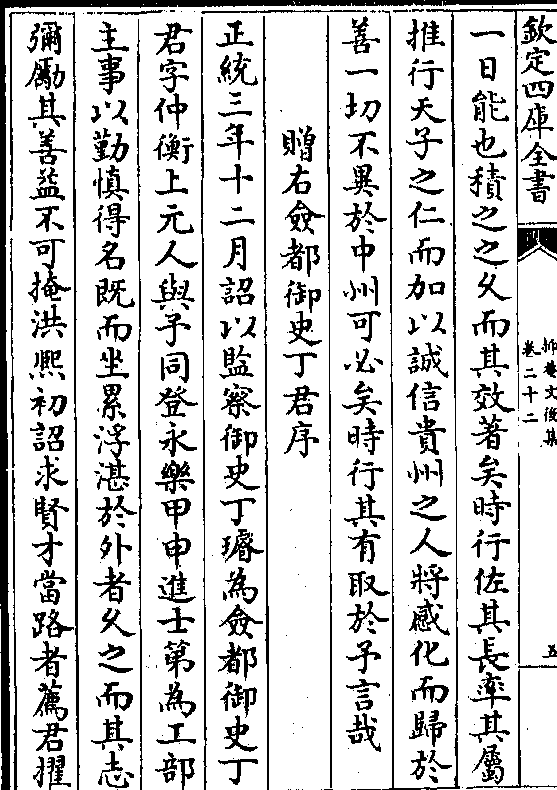 欽定四庫全書
抑菴文後集
卷二十二
五
一日能也積之之久而其效著矣時行佐其長率其屬
推行天子之仁而加以誠信貴州之人將感化而歸於
善一切不異於中州可必矣時行其有取於予言哉
贈右僉都御史丁君序
正統三年十二月詔以監察御史丁璿為僉都御史丁
君字仲衡上元人與予同登永樂甲申進士第為工部
主事以勤慎得名既而坐累浮湛於外者久之而其志
彌勵其善益不可掩洪熙初詔求賢才當路者薦君擢